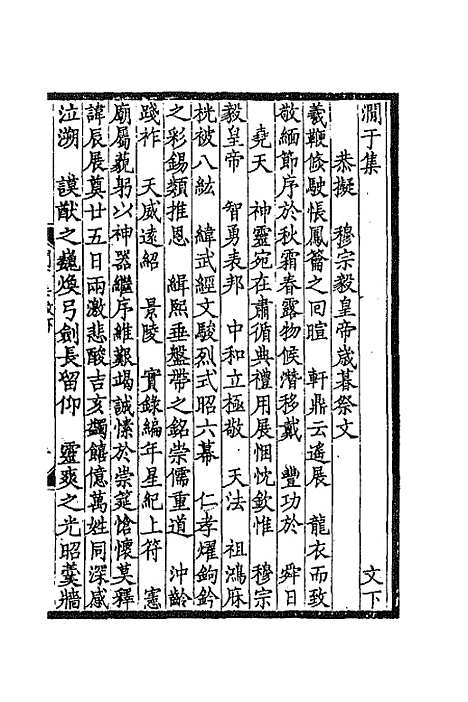 澗于集 文下
恭擬 穆宗毅皇帝歲暮祭文
羲鞭倏駛悵鳳籥之回暄 軒鼎云遙展 龍衣而致
敬緬節序於秋霜春露物候潛移戴 豐功於 舜日
堯天 神靈宛在肅循典禮用展悃忱欽惟 穆宗
毅皇帝 智勇表邦 中和立極敬 天法 祖鴻庥
桄被八紘 緯武經文駿烈式昭六幕 仁孝燿鉤鈐
之彩錫類推恩 緝熙垂盤帶之銘崇儒重道 沖齡
踐祚 天威遠紹 景陵 實錄編年星紀上符 憲
廟屬藐躬以神器繼序維艱竭誠愫於崇筵愴懷莫釋
諱辰展奠廿五日兩激悲酸吉亥蠲饎億萬姓同深感
泣溯 謨猷之巍煥弓劍長留仰 靈爽之光昭羹牆